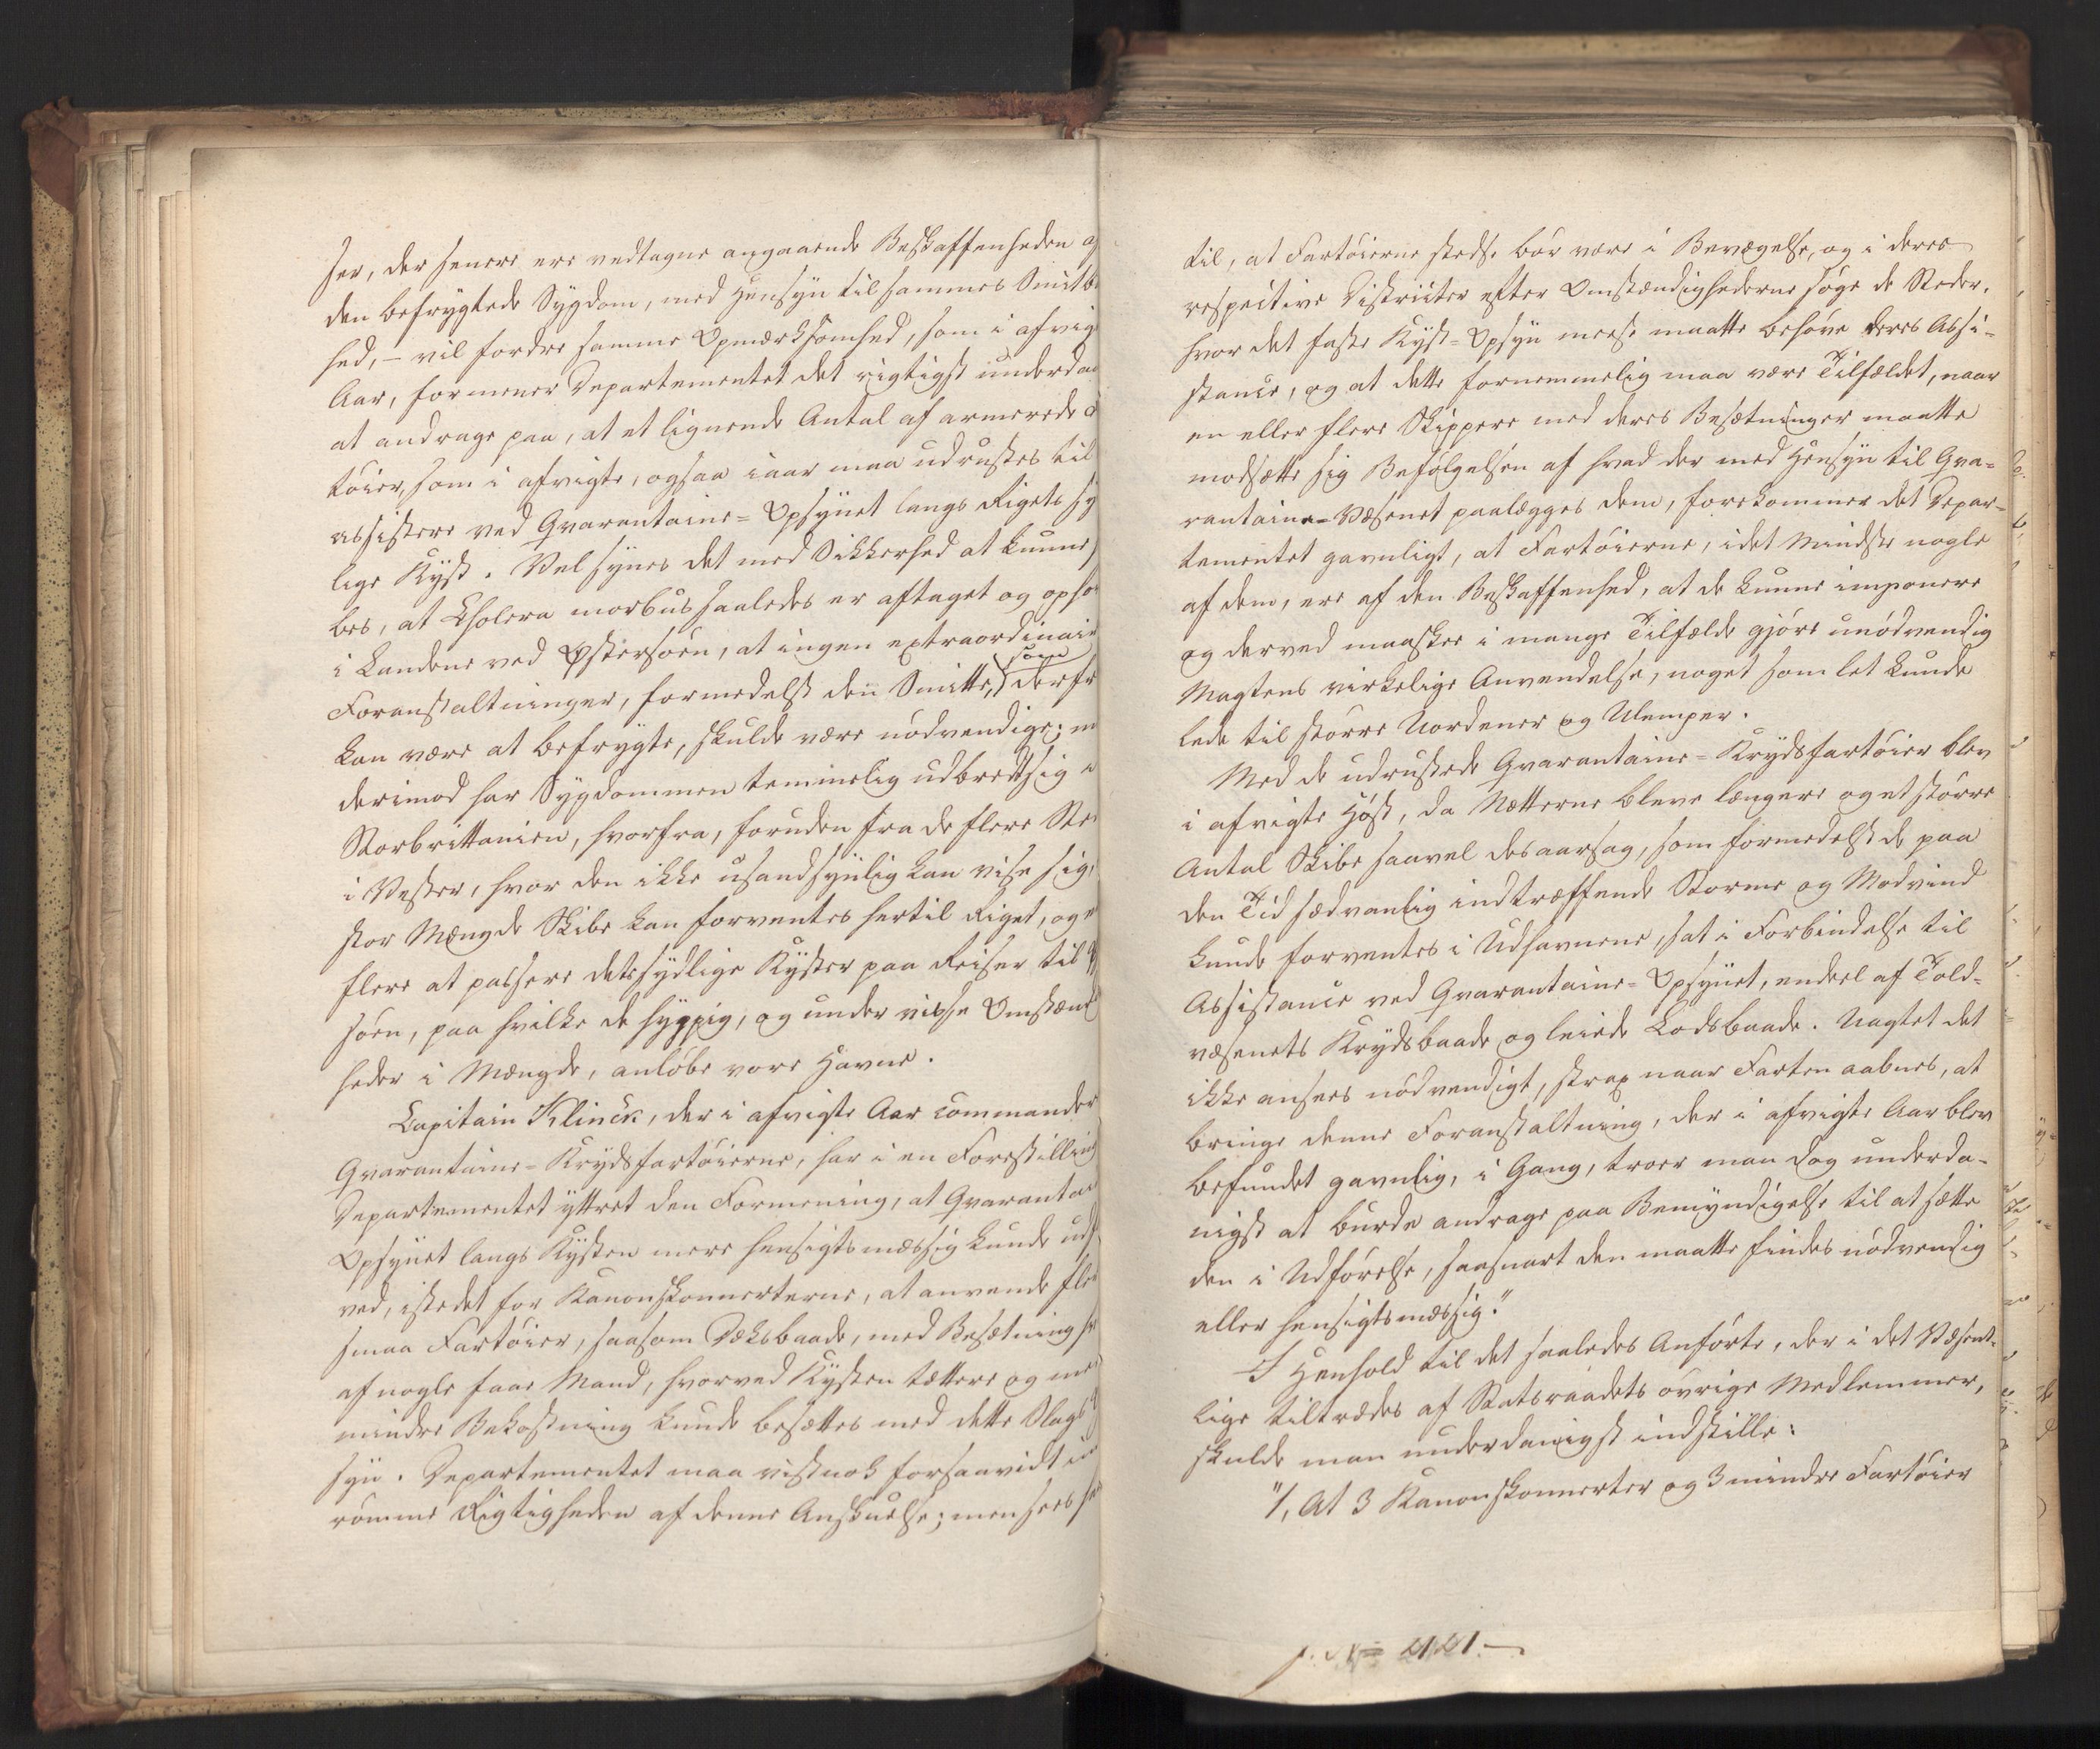 ser, der senere ere vedtagne angaaende Beskaffenheden af
den befrygtede Sygdom, med Hensyn til sammes Smitb
hed, – vil fordre samme Opmærksomhed, som i afvig
Aar, formener Departementet det rigtigst underda
at andrage paa, at et lignende Antal af armerede
tøier, som i afvigte, ogsaa iaar maa udrustes til
assistere ved Qvarantaine-Opsynet langs Rigets sy
lige Kyst. Vel synes det med Sikkerhed at kunne
bes, at Cholera morbus saaledes er aftaget og opho
i Landene ved Østersøen, at ingen extraordinair
som
Foranstaltninger, formedelst den Smitte, derfr
kan være at befrygte, skulde være nødvendige; m
derimod har Sygdommen temmelig udbredt sig i
Storbrittanien, hvorfra, foruden fra de flere Ste
i Vester, hvor den ikke usandsynlig kan vise sig,
stor Mængde Skibe kan forventes hertil Riget, og
flere at passere dets sydlige Kyster paa Reiser til
søen, paa hvilke de hyppig, og under visse Omstænd
heder i Mængde, anløbe vore Havne.
Capitain Klinck, der i afvigte Aar commander
Qvarantaine-Krydsfartøierne, har i en Forestilling
Departementet yttret den Formening, at Qvaranta
Opsynet langs Kysten mere hensigtsmæssig kunde ud
ved, istedet for Kanonskonnerterne, at anvende fle
smaa Fartøier, saasom Dæksbaade, med Besætning
af nogle faae Mand, hvorved Kysten tættere og me
mindre Bekostning kunde besættes med dette Slags
syn. Departementet maa vistnok forsaavidt
rømme Rigtigheden af denne Anskuelse; men sees
til, at Fartøierne stedse bør være i Bevægelse, og i deres
respective Districter efter Omstændighederne søge de Steder,
hvor det faste Kyst-Opsyn meest maatte behøve deres Assi-
stance, og at dette fornemmelig maa være Tilfældet, naar
en eller flere Skippere med deres Besætninger maatte
modsætte sig Befølgelsen af hvad der med Hensyn til Qva-
rantaine-Væsenet paalægges dem, forekommer det Depar-
tementet gavnligt, at Fartøierne, idet Mindste nogle
af dem, ere af den Beskaffenhed, at de kunne imponere
og derved maaskee i mange Tilfælde gjøre unødvendig
Magtens virkelige Anvendelse, noget som let kunde
lede til større Uordener og Ulemper.
Med de udrustede Qvarantaine-Krydsfartøier blev
i afvigte Høst, da Nætterne bleve længere og et større
Antal Skibe saavel desaarsag, som formedelst de paa
den Tid sædvanlig indtræffende Storme og Modvind
kunde forventes i Udhavnene, sat i Forbindelse til
Assistance ved Qvarantaine-Opsynet, endeel af Told-
væsenets Krydsbaade og leiede Lodsbaade. Uagtet det
ikke ansees nødvendigt, strax naar Farten aabnes, at
bringe denne Foranstaltning, der i afvigte Aar blev
befundet gavnlig, i Gang, troer man dog underda-
nigst at burde andrage paa Bemyndigelse til at sætte
den i Udførelse, saasnart den maatte findes nødvendig
eller hensigtsmæssig."
I Henhold til det saaledes Anførte, der i det Væsent-
lige tiltrædes af Statsraadets øvrige Medlemmer,
skulde man underdanigst indstille:
"1, At 3 Kanonskonnerter og 3 mindre Fartøier